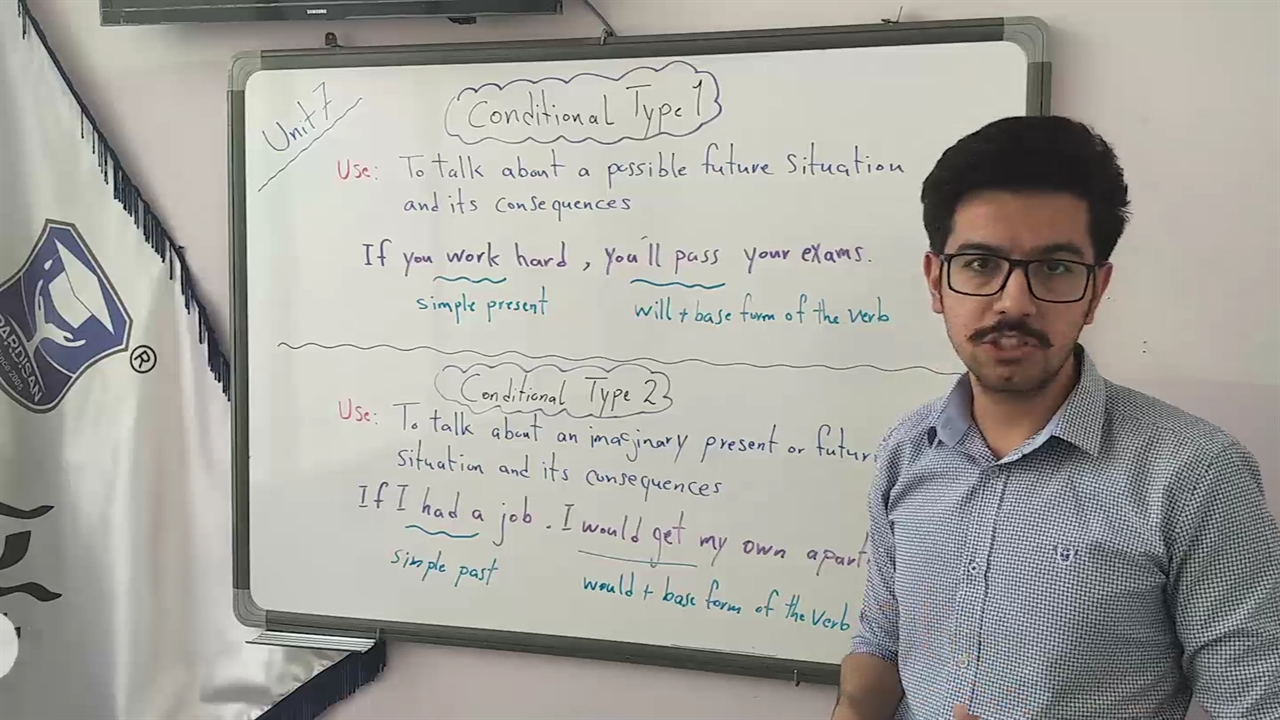 SAMSUNG
Unit 7
Conditional Type 1
Use: To talk about a possible future situation
and its consequences
If you work hard, you'll pass your exams.
simple present will + base form of the verb
Conditional Type 2
Use: To talk about an imaginary present or futur
situation and its consequences
If I had a job. I would get my own apart
simple past would + base form of the verb
PARDISAN
Since 2005
®